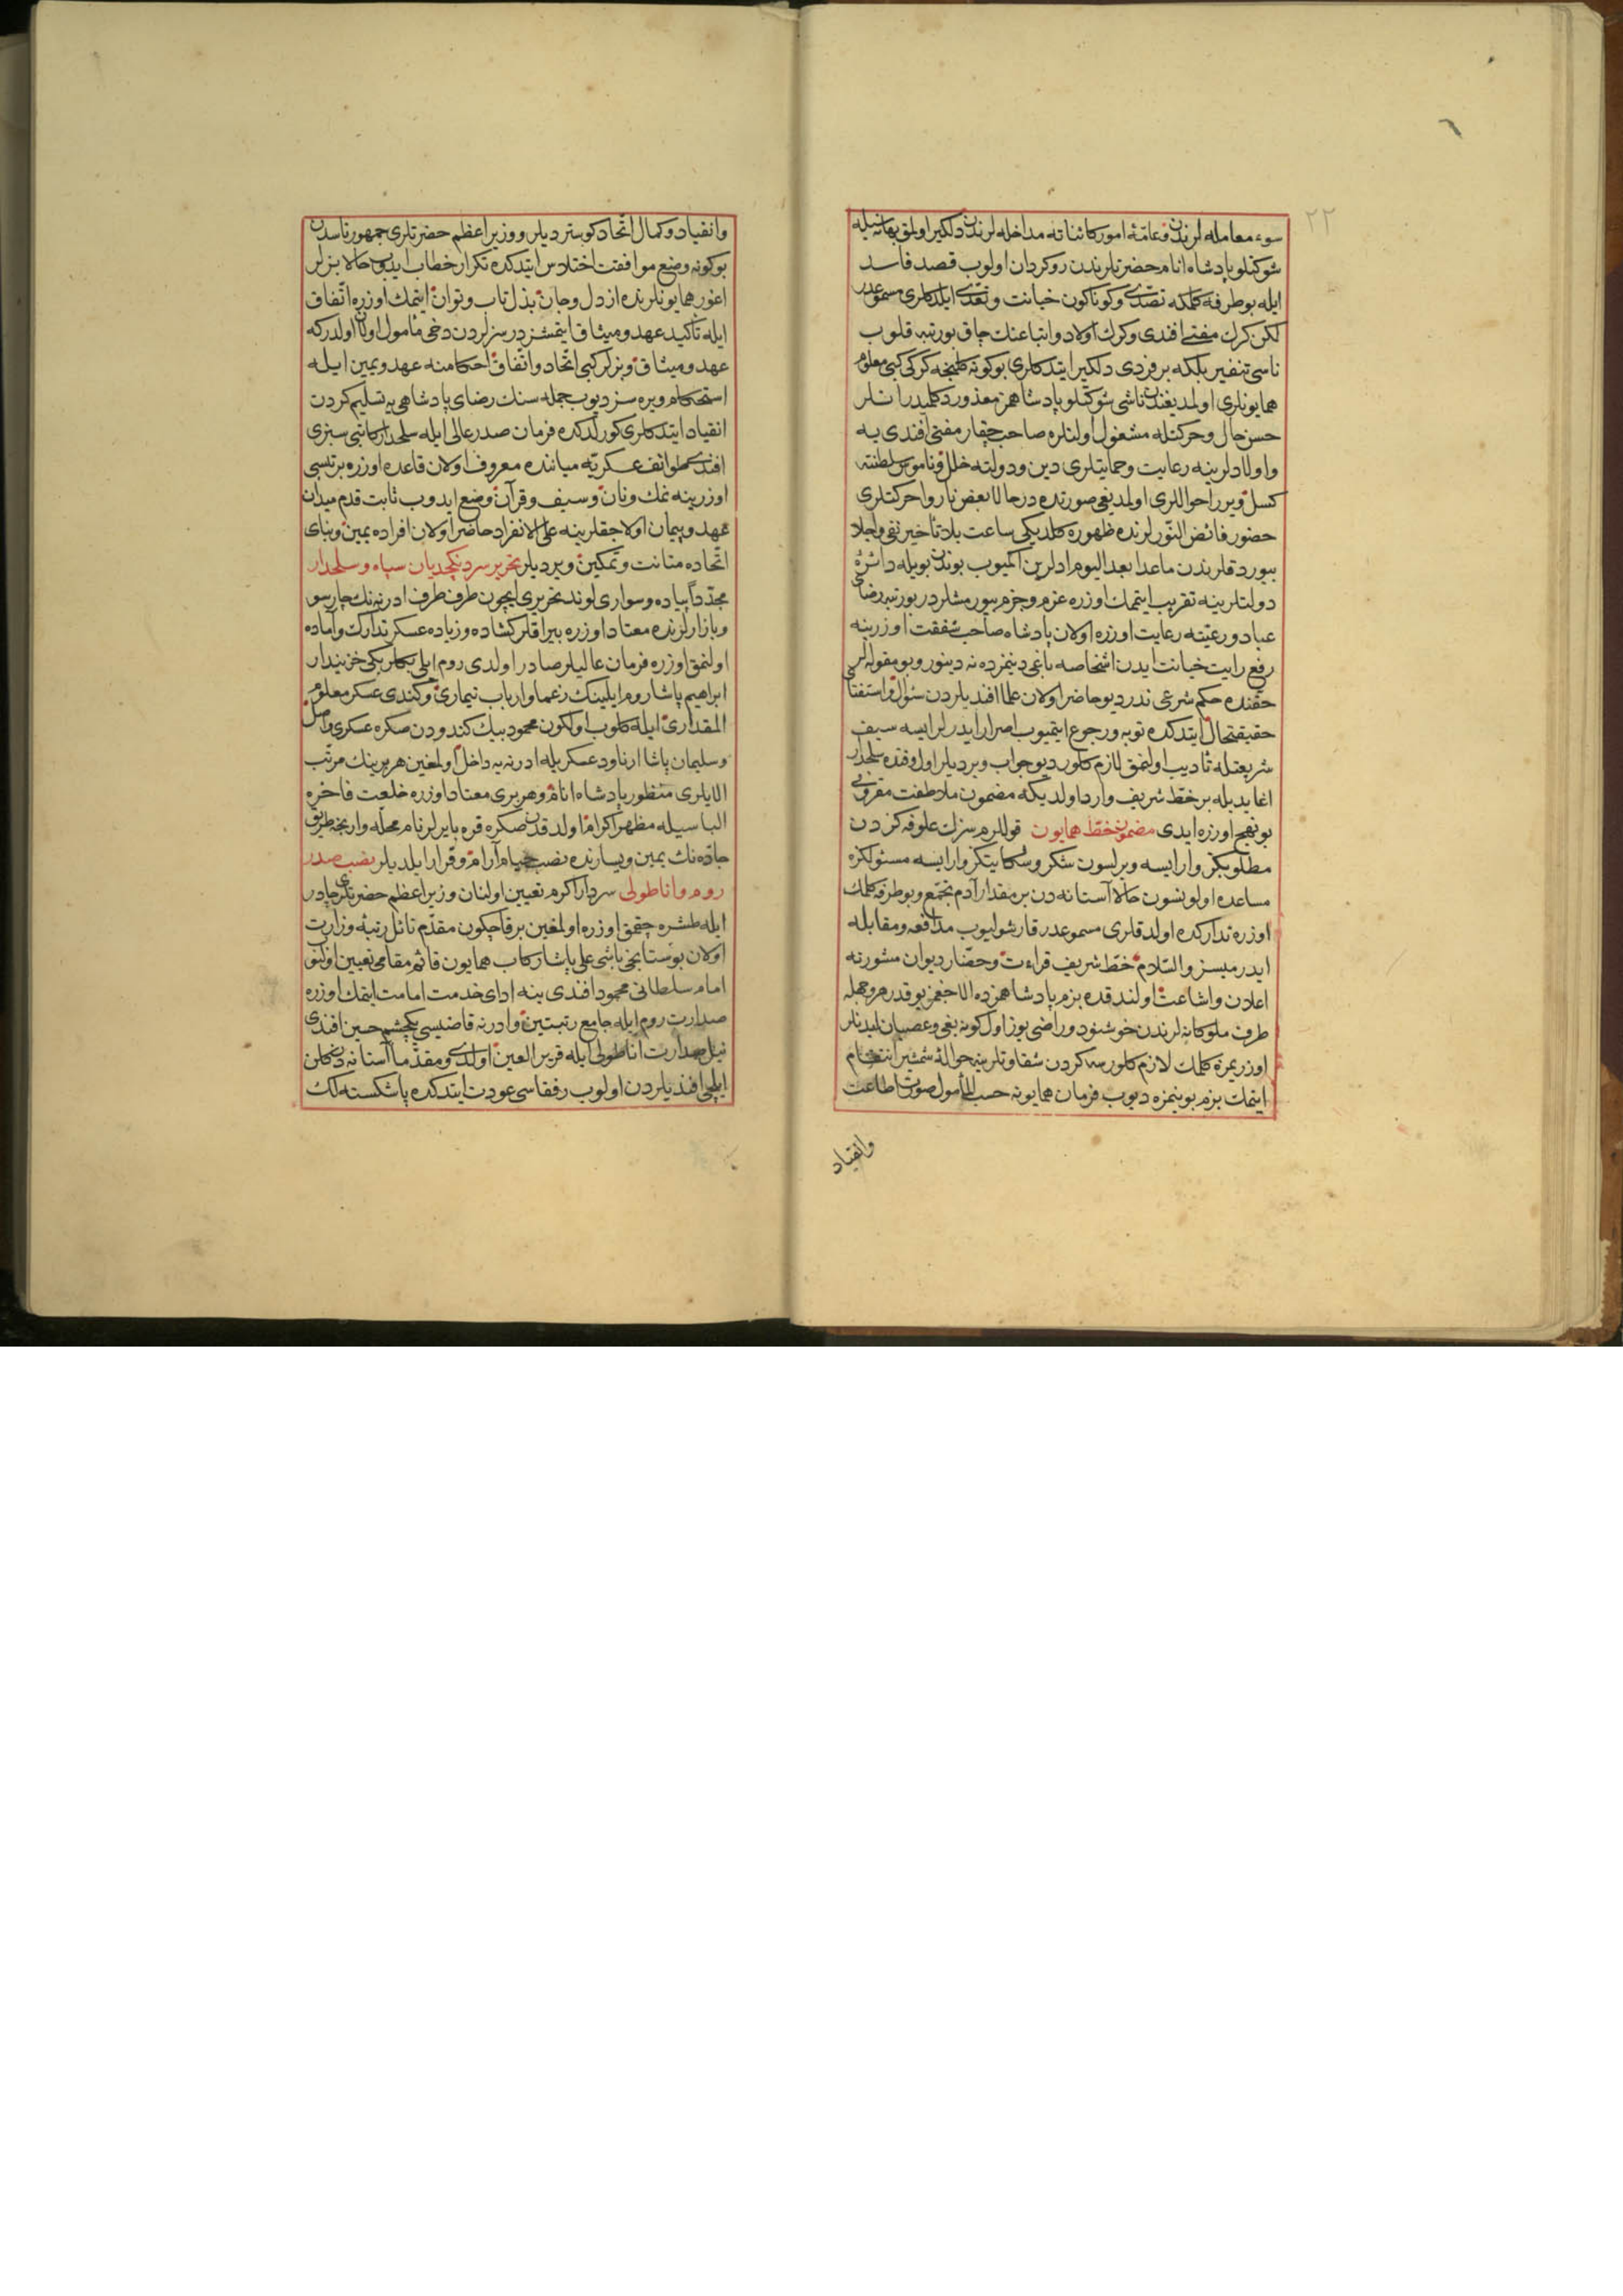 ٢٢
سوء معامله لرندن و عامّهٔ امور كائناته مداخله لرندن دلكير اولمق بهانه سيله
شوكتلو پادشاه انام حضرتلرندن روكردان اولوب قصد فاسد
ايله بو طرفه كلمكه تصدّى و كوناكون خيانت و تعدّى ايلدكلرى مسموعدر
لكن كرك مفتى افندى و كرك اولاد و اتباعنك چاق بو رتبه قلوب
ناسى تنفير بلكه بر فردى دلكير ايتدكلرى بو كونه طبخه كركى كبى معلوم
همايونلرى اولمديغندن ناشى شوكتلو پادشاهمز معذور دكلميدر انلر
حسن حال و حركتله مشغول اولنلره صاحب چقار مفتى افندى يه
و اولادلرينه رعايت و حمايتلرى دين و دولته خلل و ناموس سلطنته
كسل ويرر احواللرى اولمديغى صورتده در حالا بعض ناروا حركتلرى
حضور فائض النّورلرنده ظهوره كلديكى ساعت بلا تأخير نفى و اجلا
بيوردقلرندن ماعدا بعد اليوم ادلرين اكميوب بوندن بويله دائرهٔ
دولتلرينه تقريب ايتمك اوزره عزم و جزم بيورمشلردر بو رتبه رضاى
عباد و رعيّته رعايت اوزره اولان پادشاه صاحب شفقت اوزرينه
رفع رايت خيانت ايدن اشخاصه باغى دينمزده نه دينور و بو مقوله لر
حقنده حكم شرعى ندر ديو حاضر اولان علما افنديلردن سئوال و استفتاى
حقيقتحال ايتدكده توبه و رجوع ايتميوب اصرار ايدرلر ايسه سيف
شريعتله تأديب اولنمق لازم كلور ديو جواب ويرديلر اول وقتده سلحدار
اغا يديله بر خطّ شريف وارد اولديكه مضمون ملاطفت مقرونى
بو نهج اوزره ايدى مضمون خطّ همايون قوللرم سزك علوفه كزدن
مطلوبكز وار ايسه ويرلسون شكر و شكايتكز وار ايسه مسئولكزه
مساعده اولونسون حالا آستانه دن بر مقدار آدم تجمّع و بو طرفه كلمك
اوزره تداركده اولدقلرى مسموعدر قارشوليوب مدافعه و مقابله
ايدرميسز والسّلام خطّ شريف قراءت و حضّار ديوان مشورته
اعلان و اشاعت اولندقده بزم پادشاهمزده الاجغمز يوقدر هر وجهله
طرف ملوكانه لرندن خوشنود و راضى يوز اول كونه بغى و عصيان ايدنلر
اوزريمزه كلمك لازم كلورسه كردن شقاوتلرينه حوالهٔ شمشير انتقام
ايتمك بزم بوينمزه ديوب فرمان همايونه حسب المأمول صورت اطاعت
وانقياد
وانقياد و كمال اتّحاد كوستردیلر و وزير اعظم حضرتلرى جمهور ناسدن
بو كونه وضع موافقت اختلاس ايتدكده تكرار خطاب ايدوب حالا بزلر
اغور همايونلرنده از دل و جان بذل تاب و توان ايتمك اوزره اتّفاق
ايله تأكيد عهد و ميثاق ايتمشزدر سزلردن دخى مأمول اولان اولدركه
عهد و ميثاق و بزلر كبى اتّحاد و اتّفاق احكامنه عهد و يمين ايله
استحكام ويره سز ديوب جمله سنك رضاى پادشاهى يه تسليم كردن
انقياد ايتدكلرى كورلدكده فرمان صدر عالى ايله سلحدار كاتبى سبزى
افندى طوائف عسكريّه مياننده معروف اولان قاعده اوزره بر تپسى
اوزرينه نمك و نان و سيف و قرآن وضع ايدوب ثابت قدم ميدان
عهد و پيمان اولاجقلرينه على الانفراد حاضر اولان افراده يمين و بناى
اتّحاده متانت و تمكين ويرديلر تحرير سردنكچديان سپاه و سلحدار
مجدّداً پياده و سوارى لوند تحريرى ايچون طرف طرف ادرنه نك چارسو
و بازارلرنده معتاد اوزره بيراقلر كشاده و زياده عسكر تدارك و آماده
اولنمق اوزره فرمان عاليلر صادر اولدى روم ايلى بكلربكى خزينه دار
ابراهيم پاشا روم ايلينك زعما و ارباب تيمارى و كندى عسكر معلوم
المقدارى ايله كلوب اولكون محمود بيك كندودن صكره عسكرى واصل
و سليمان پاشا ارناود عسكريله ادرنه يه داخل اولمغين هر برينك مرتّب
الايلرى منظور پادشاه انام و هر برى معتاد اوزره خلعت فاخره
الباسيله مظهر اكرام اولدقدن صكره قره بايرلر نام محلّه وارنجه طريق
جادّه نك يمين و يسارنده نصب خيام آرام و قرار ايلديلر نصب صدر
روم و اناطولى سردار اكرم تعيين اولنان وزير اعظم حضرتلرى چادر
ايله طشره چقمق اوزره اولمغين بر قاچ كون مقدّم نائل رتبهٔ وزارت
اولان بوستانجى باشى على پاشا ركاب همايون قائم مقامى تعيين اولنوب
امام سلطانى محمود افندى ينه اداى خدمت امامت ايتمك اوزره
صدارت روم ايله جامع رتبتين و ادرنه قاضيسى يكچشم حسين افندى
نيل صدارت اناطولى ايله قرير العين اولدى و مقدّما آستانه دن كلن
ايلچى افنديلردن اولوب رفقاسى عودت ايتدكده پاشكسته لك